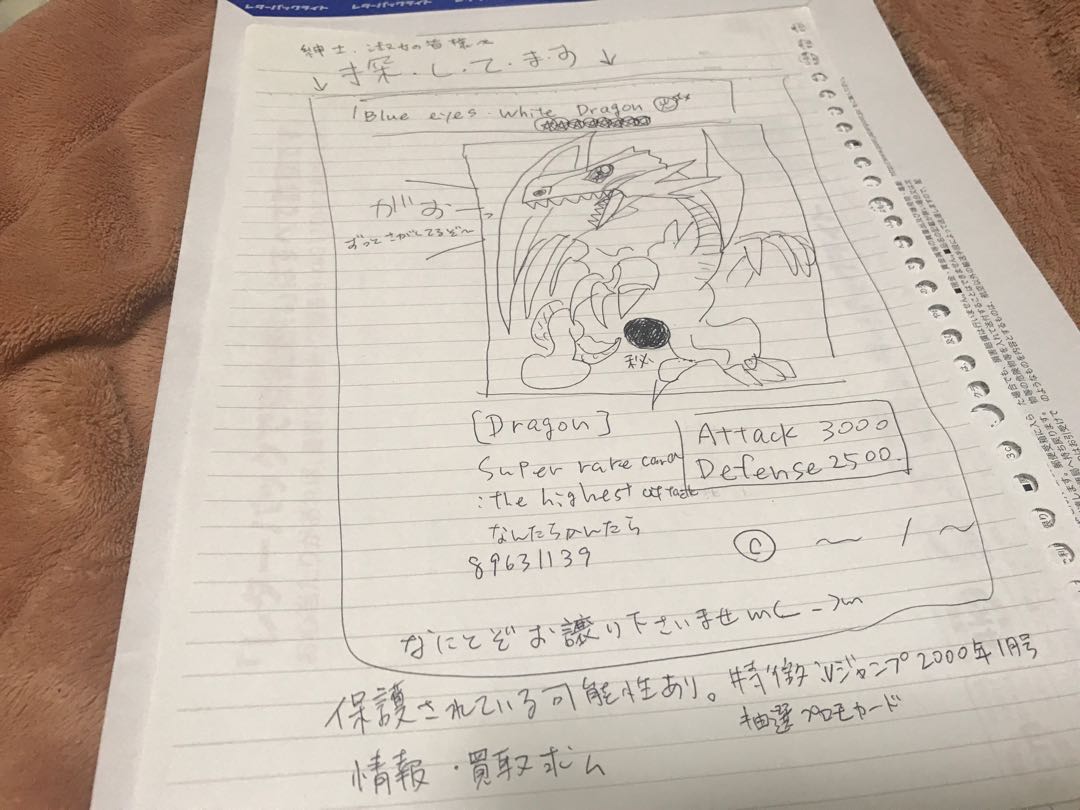 レターパックライト レターパックライト
紳士、淑女の皆様へ
↓探・し・て・ま・す↓
Blue eyes・White Dragon
がお
ずっとさがしてるぞ～
秘
[Dragon]
Attack 3000
Defense 2500.
Super rare card
:the highest attack
なんたらかんたら
89631139
© ～ / ～
なにとぞお譲り下さいませm(_ _)m
保護されている可能性あり。
特徴:Vジャンプ2000年1月号
抽選プロモカード
情報・買取求ム